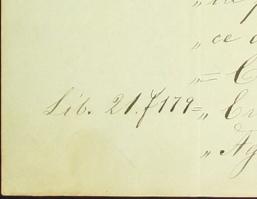 „ ce
„ = C
Lib. 21. f 179 = „ En
„ Ag